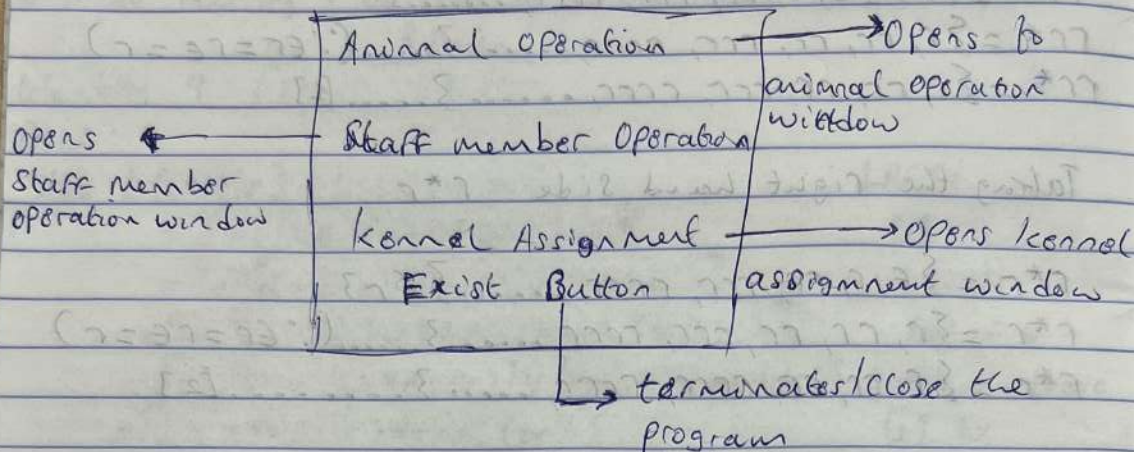 Animal Operation → Opens to
animal operation
window
Opens ← Staff member Operation
Staff member
operation window
Kennel Assignment → Opens kennel
assignment window
Exist Button
terminates/close the
program